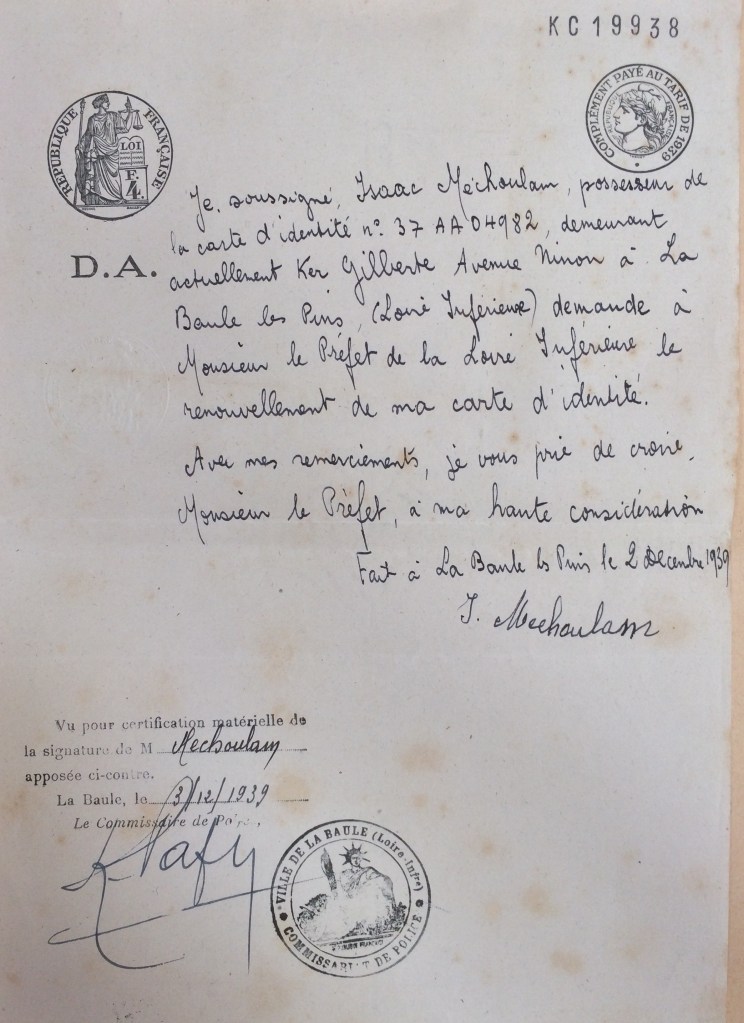 KC19938
RÉPUBLIQUE FRANÇAISE
LOI
F.
4.
COMPLÉMENT PAYÉ AU TARIF DE 1939
RÉPUBLIQUE FRANÇAISE
D.A.
Je, soussigné, Isaac Méchoulam, possesseur de
la carte d'identité n° 37 AA 04982, demeurant
actuellement Ker Gilberte Avenue Ninon à La
Baule les Pins, (Loire Inférieure) demande à
Monsieur le Préfet de la Loire Inférieure le
renouvellement de ma carte d'identité.
Avec mes remerciements, je vous prie de croire,
Monsieur le Préfet, à ma haute considération
Fait à La Baule les Pins le 2 Décembre 1939
I. Mechoulam
Vu pour certification matérielle de
la signature de M Mechoulam
apposée ci-contre.
La Baule, le 3/12/1939
Le Commissaire de Police,
VILLE DE LA BAULE (Loire-Infre)
COMMISSARIAT DE POLICE